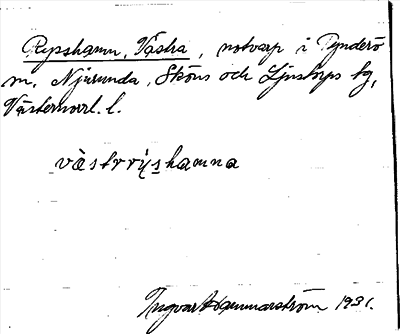 Rysshamn, Västra, notvarp i Tynderö
m, Njurunda, Sköns och Ljustorps tg,
Västernorrl. l.
västrryshamna
Ingvar Hammarström 1931.